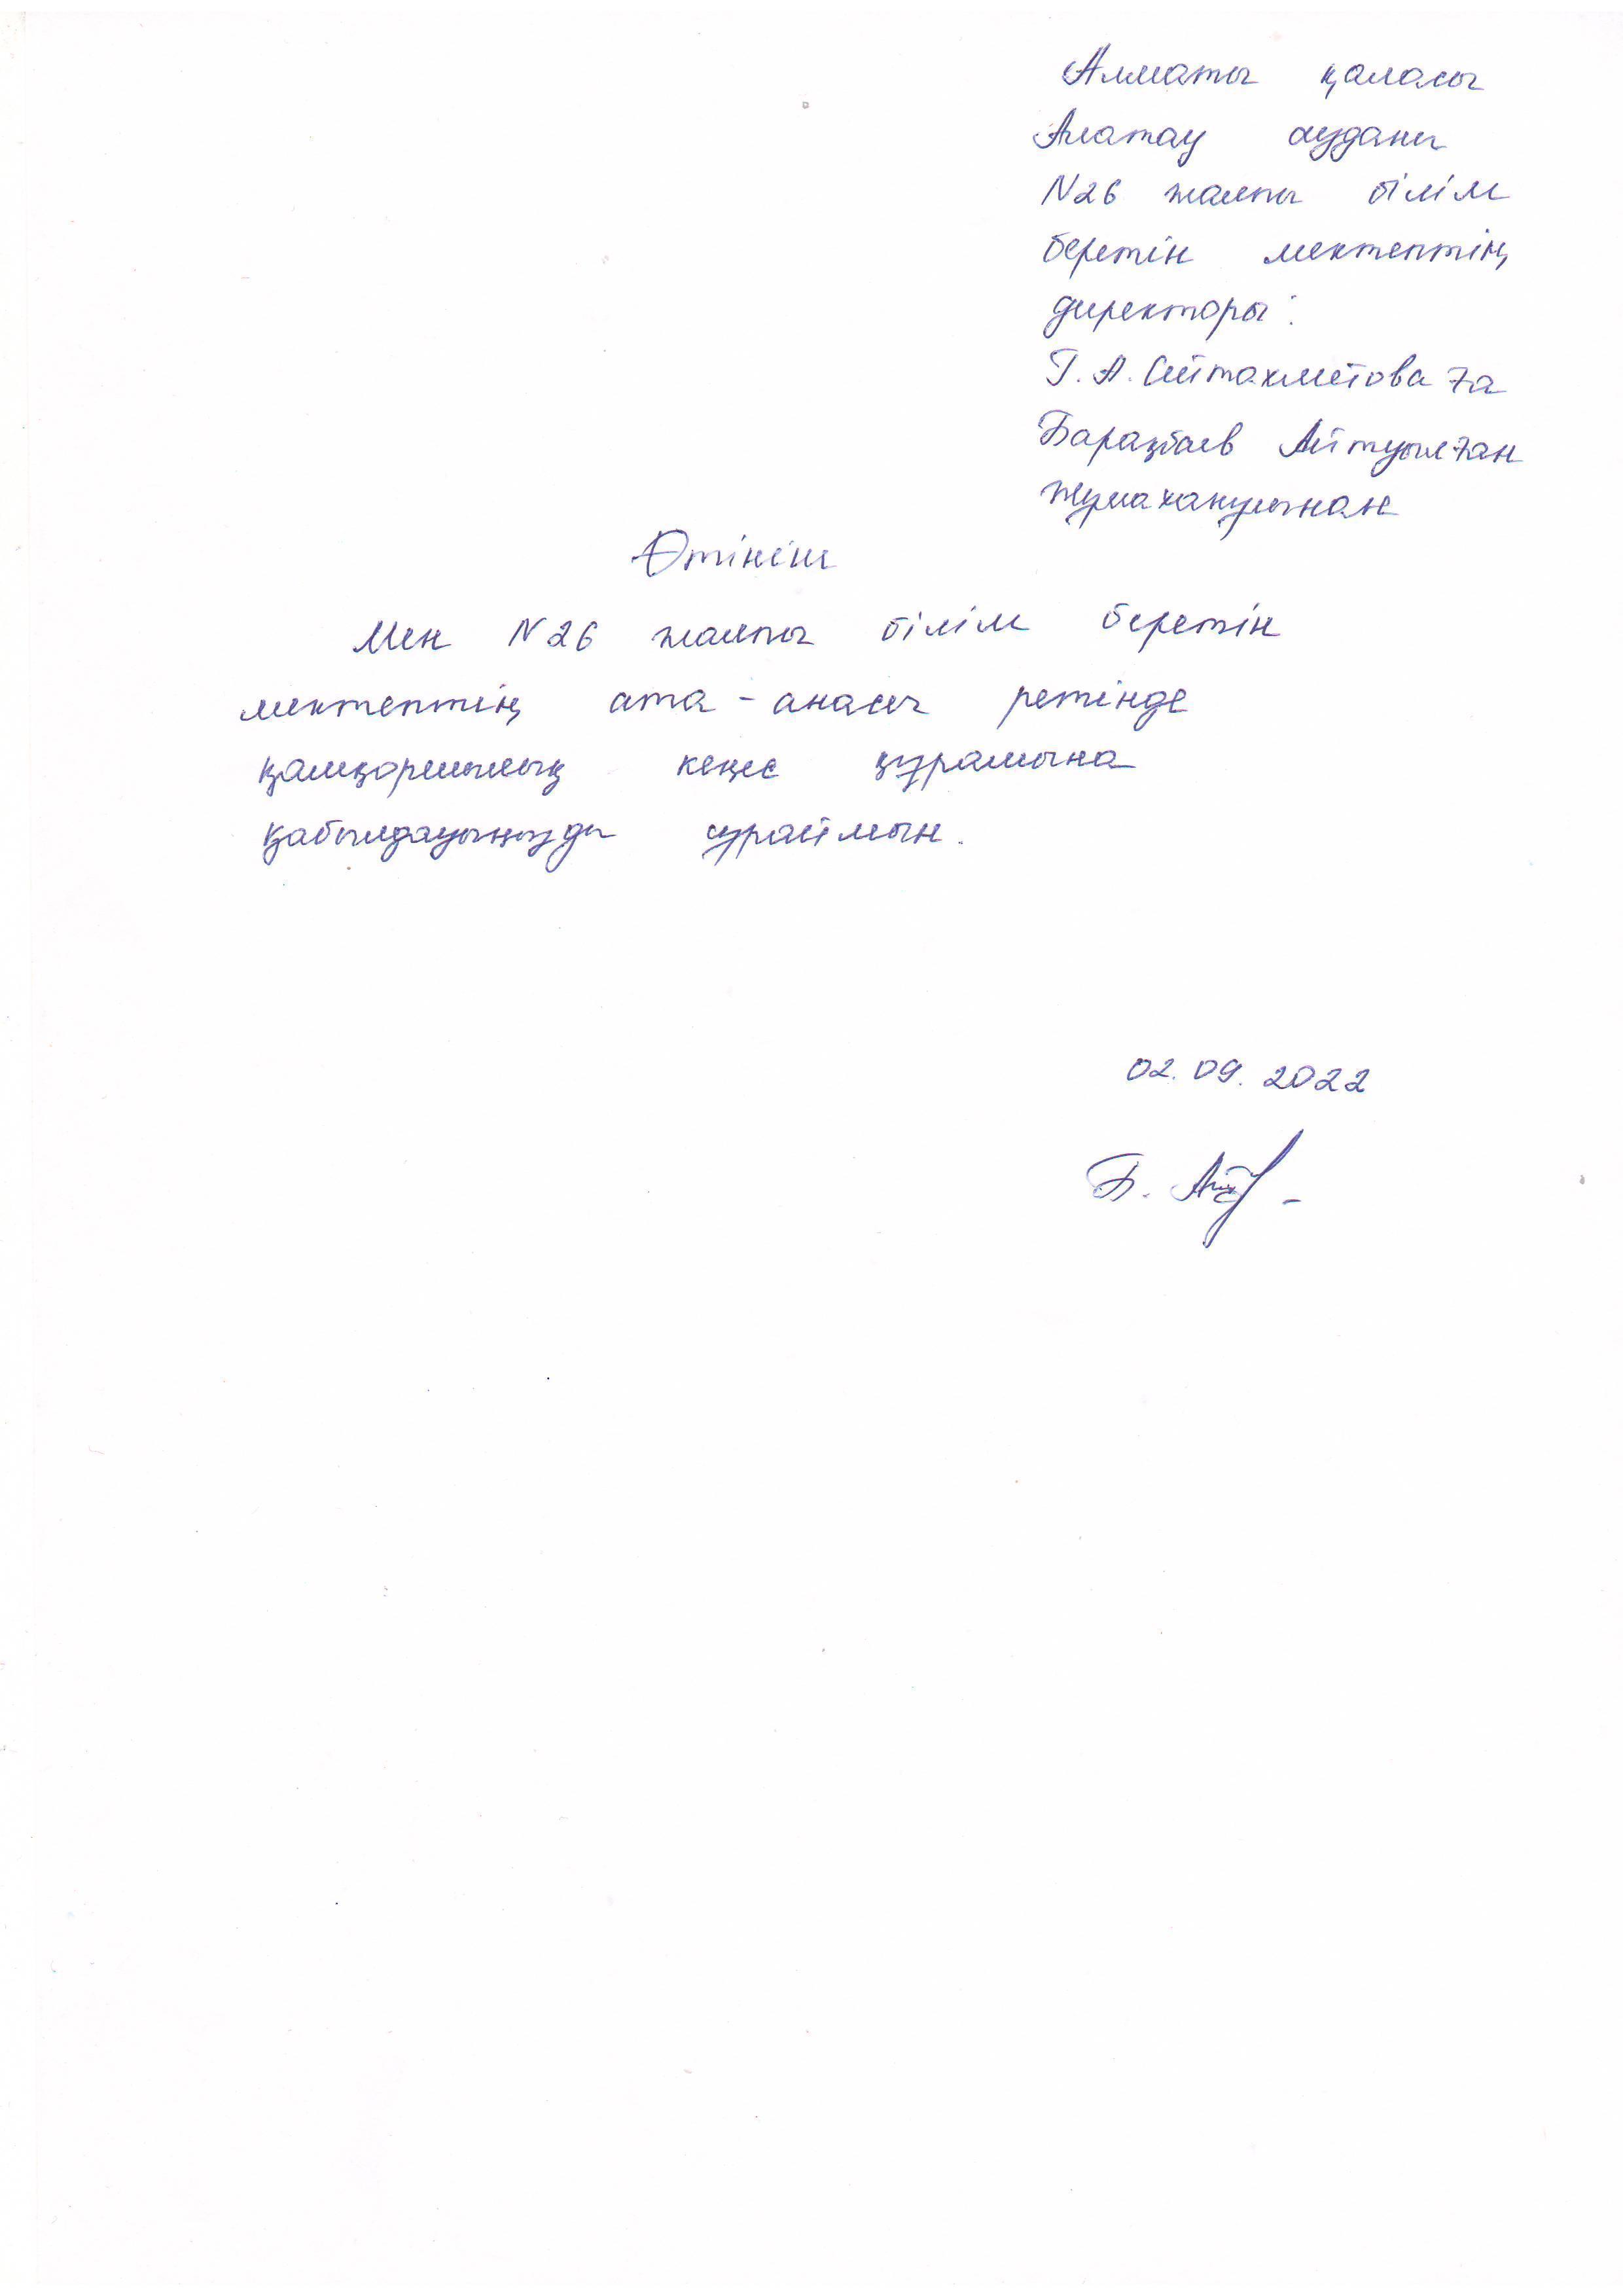 Алматы қаласы
Алатау ауданы
N26 жалпы білім
беретін мектептің
директоры:
Г. А. Сейтахметова ға
Барақбаев Айтуылған
Жұмаханұлынан
Өтініш
Мен N26 жалпы білім беретін
мектептің ата-анасы ретінде
қамқоршылық кеңес құрамына
қабылдауыңызды сұраймын.
02.09.2022
Б.